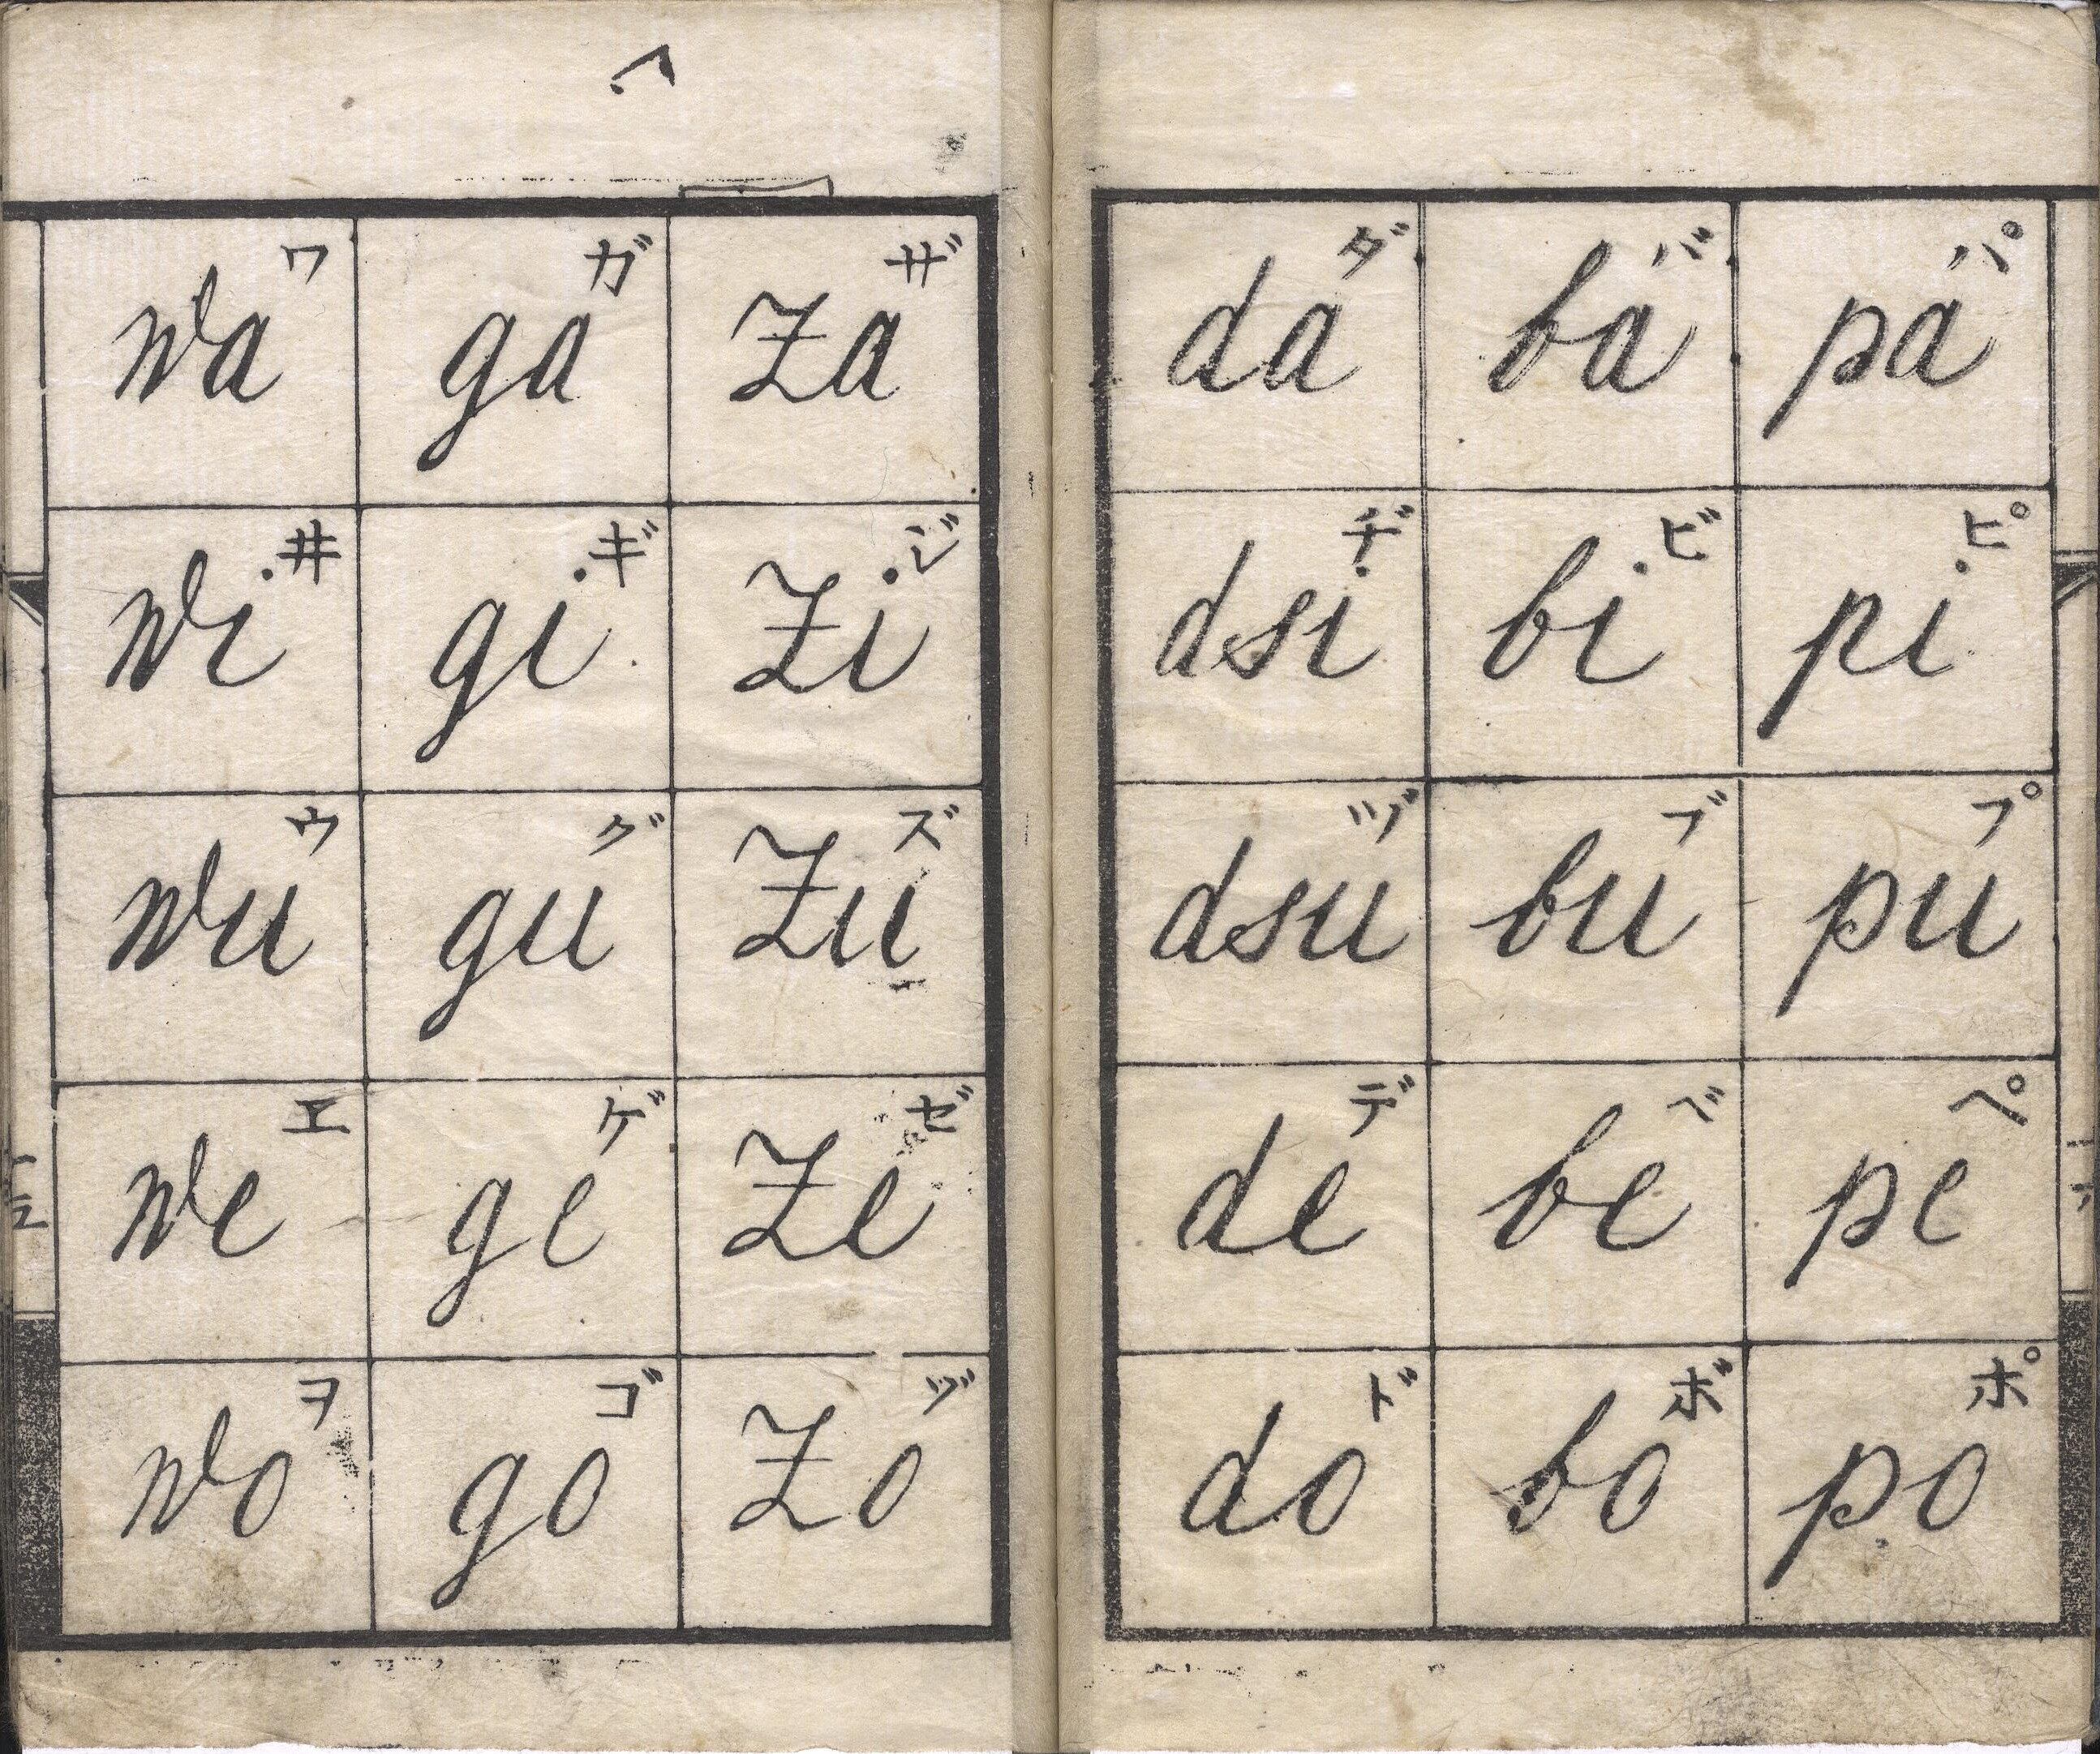 wa ワ ga ガ za ザ
wi 井 gi ギ zi ジ
wu ウ gu グ zu ズ
we ヱ ge ゲ ze ゼ
wo ヲ go ゴ zo ゾ
da ダ ba バ pa パ
dsi ヂ bi ビ pi ピ
dsu ヅ bu ブ pu プ
de デ be ベ pe ペ
do ド bo ボ po ポ